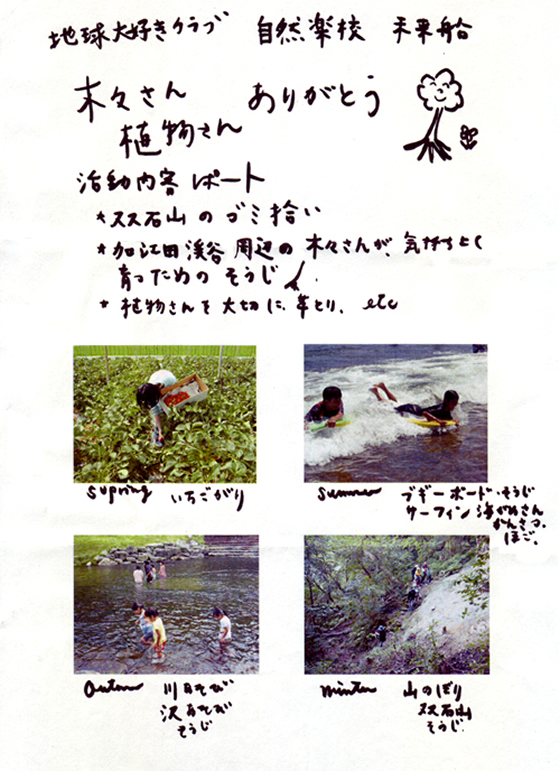 地球大好きクラブ 自然楽校 禾果船
木々さん ありがとう
植物さん
活動内容レポート
*双石山のゴミ拾い
*加江田渓谷周辺の木々さんが、気持ちよく
育つためのそうじ
*植物さんを大切に、草とり、etc
supring いちごがり
summer ブギーボード・そうじ
サーフィン 海がめさん
かんさつ、
ほご。
autumn 川あそび
沢あそび
そうじ
winter 山のぼり
双石山
そうじ.